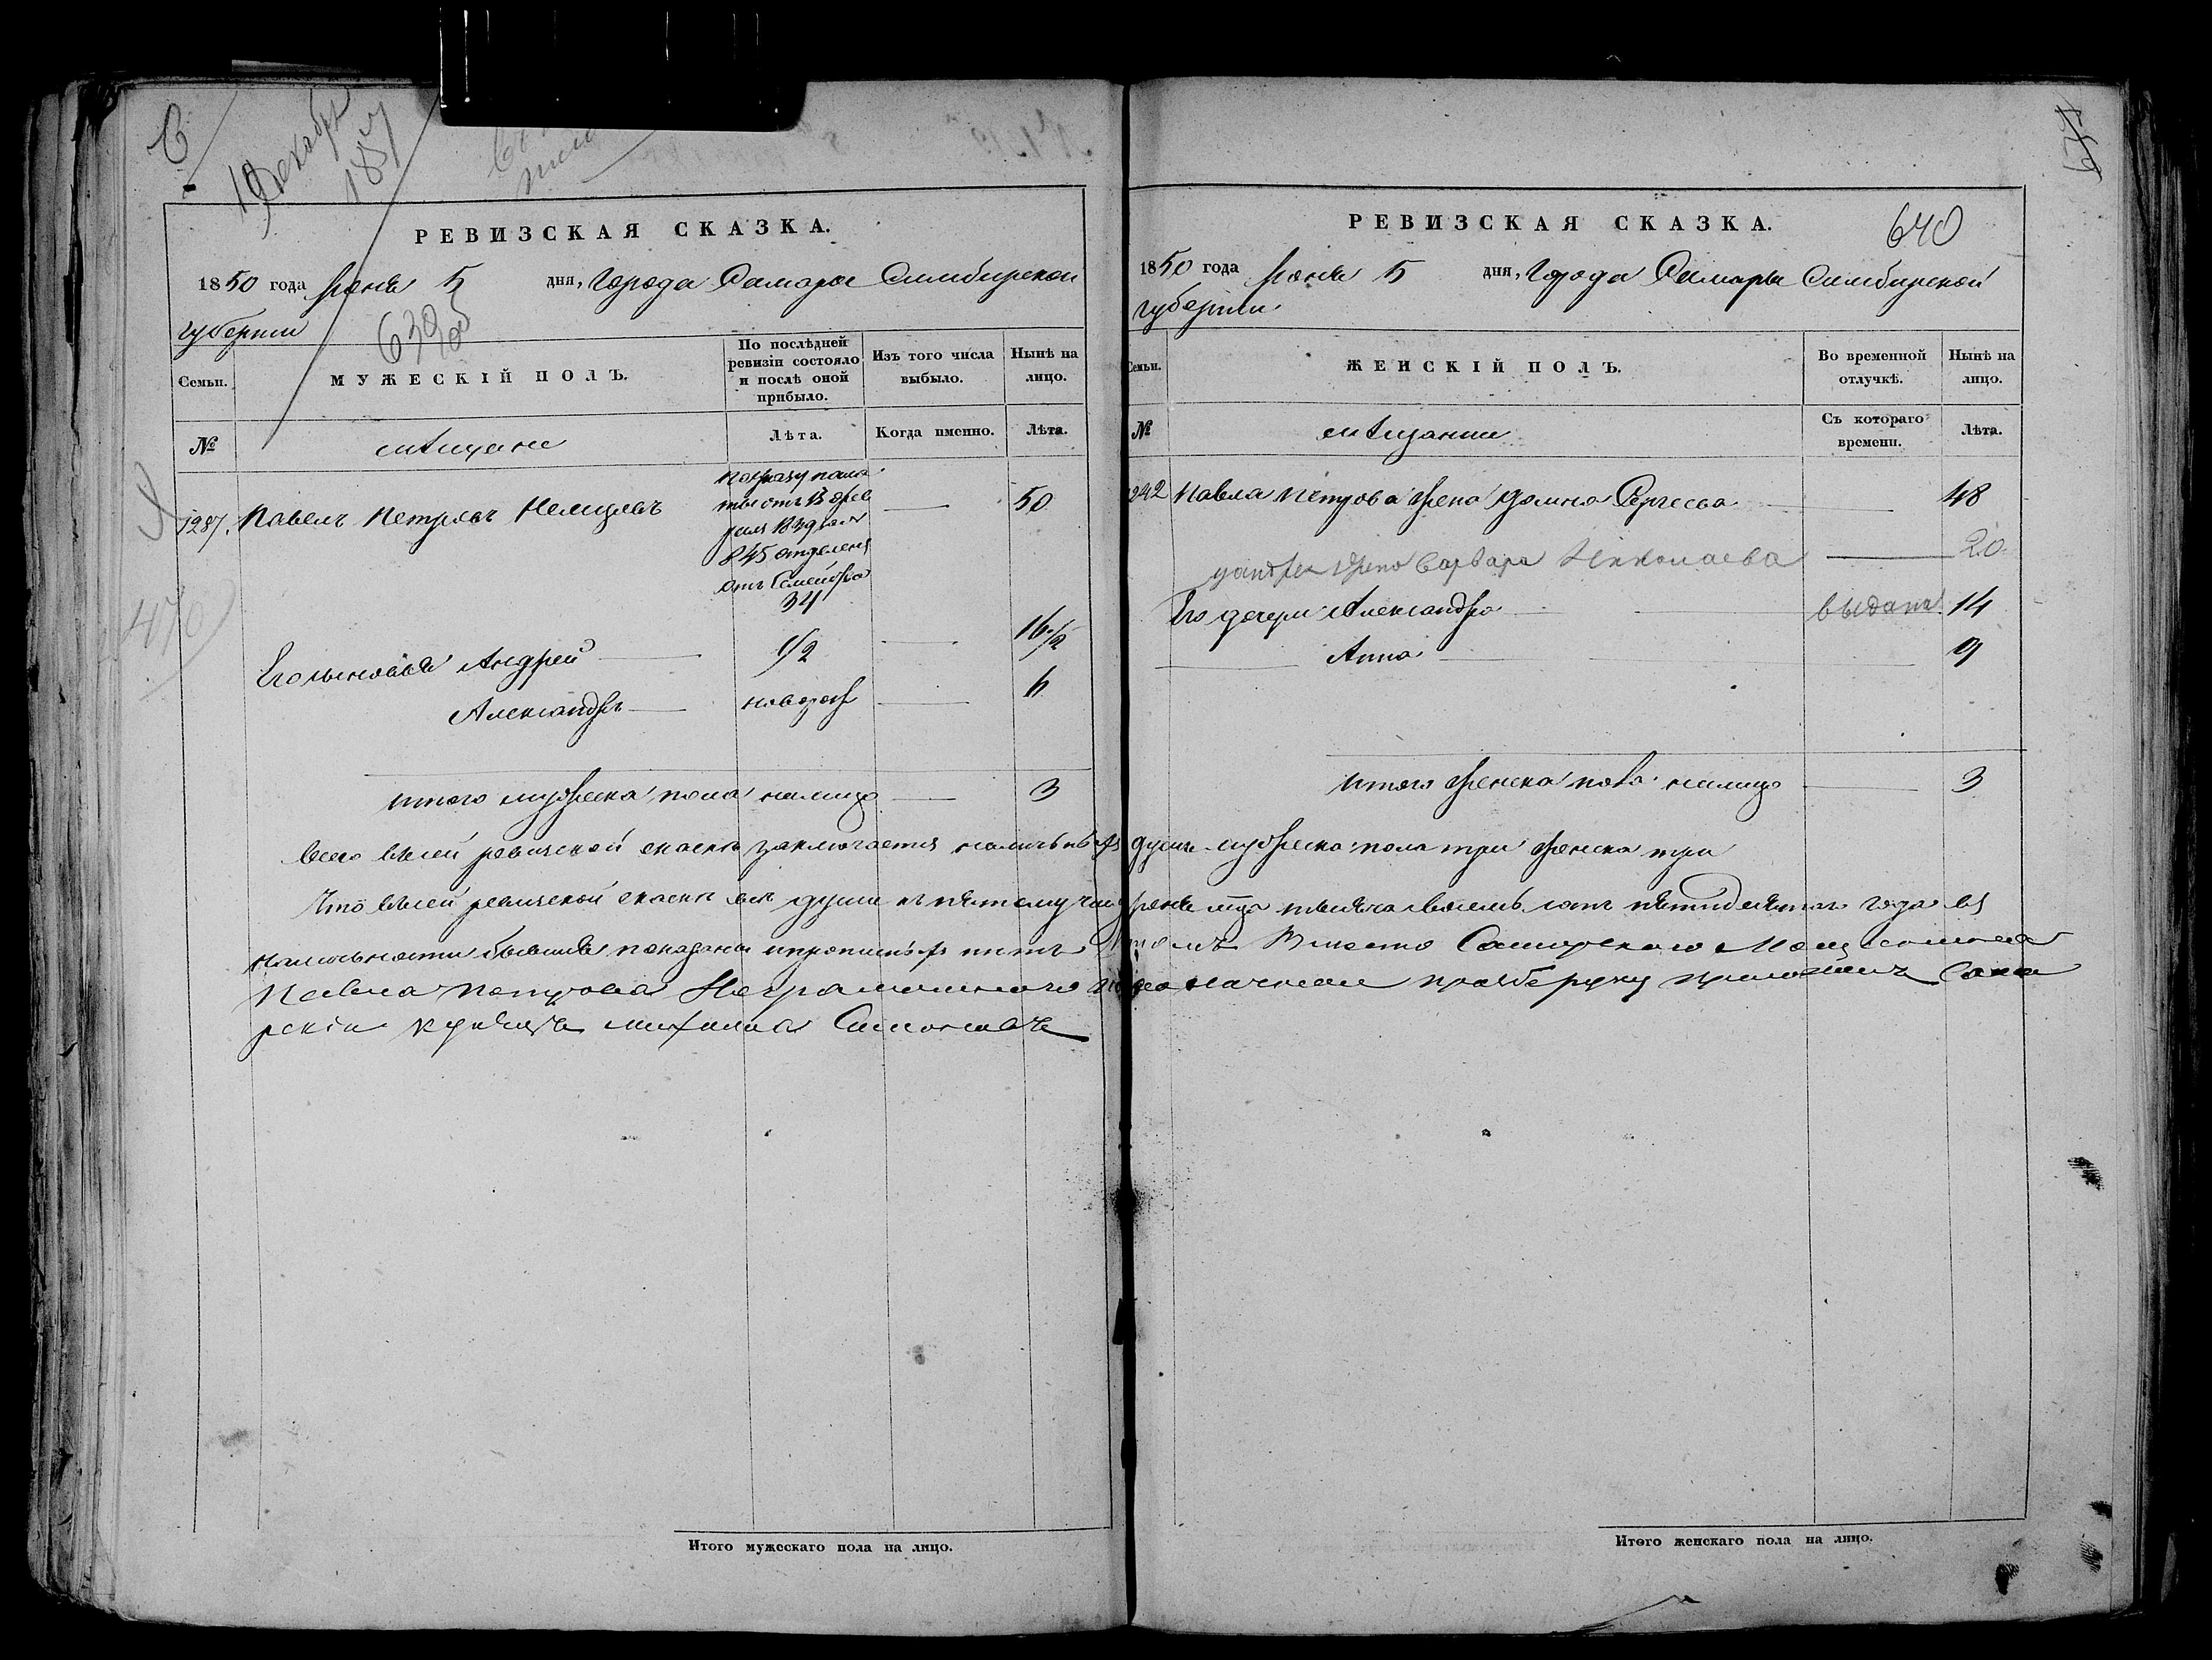 С
10 Декабр
1857
РЕВИЗСКАЯ СКАЗКА.
1850 года Июня 5 дня, Города Самары Симбирской
губернии
639 об
Семьи.
МУЖЕСКІЙ ПОЛЪ.
По послѣдней ревизіи состояло и послѣ оной прибыло.
Изъ того числа выбыло.
Нынѣ на лицо.
№
мѣщане
Лѣта.
Когда именно.
Лѣта.
1287. Павелъ Петровъ Немцовъ
по указу пала
ты отъ 13 фев
раля
845 отделенъ
отъ семейства
34
50
470
Его сыновья Андрей 1/2 16 1/2
Александръ новорож 6
итого мужеска пола налицо 3
РЕВИЗСКАЯ СКАЗКА.
640
1850 года Июня 5 дня, Города Самары Симбирской
губернии
Семьи.
ЖЕНСКІЙ ПОЛЪ.
Во временной отлучкѣ.
Нынѣ на лицо.
№
мѣщанки
Съ котораго времени.
Лѣта.
1242 Павла Петрова жена Домна Сергеева 48
у андрея жена Варвара Николаева 20
Его дочери Александра выдана 14
Анна 9
итого женска пола налицо 3
Всего въ сей ревиской скаске заключается наличныхъ душъ мужеска пола три женска три
Что въ сей ревиской скаске все души къ пятому числу июня мца тысяча восемь сотъ пятидесятаго года въ
наличности бывшия показаны и прописныхъ нетъ в томъ Вместо Самарскаго Мещанина
Павла Петрова Неграмотнаго по его личной прозбе руку приложилъ Сама
рскiй купецъ михаила Симоновъ
Итого мужескаго пола на лицо.
Итого женскаго пола на лицо.